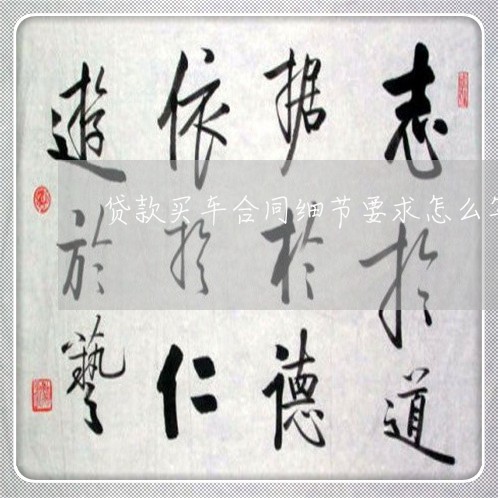 志於道
据於德
依於仁
遊於藝
贷款买车合同细节要求怎么